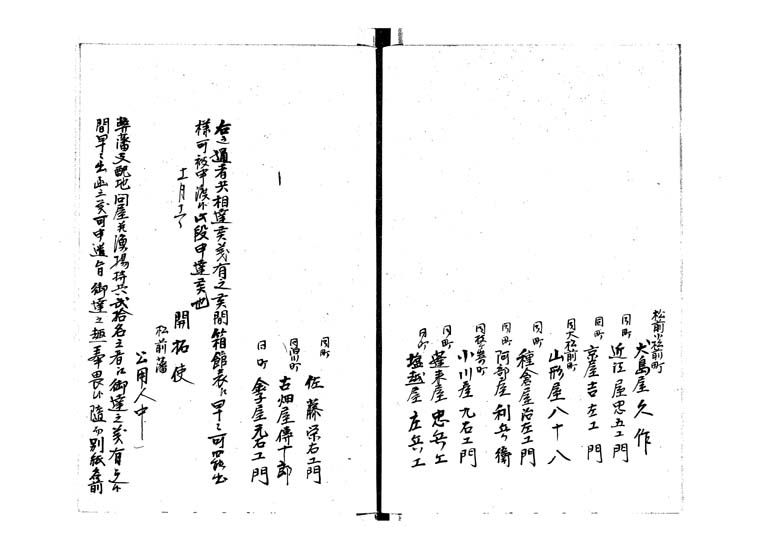 松前小松前町
犬島屋久作
同町
近江屋忠五エ門
同町
京屋吉左エ門
同大松前町
山形屋八十八
同町
種倉屋治左エ門
同町
阿部屋利兵衛
同枝ヶ崎町
小川屋九右エ門
同町
蓬来屋忠兵エ
同町
塩越屋庄兵エ
同町
佐藤栄右エ門
同泊川町
古畑屋傳十郎
同町
金子屋元右エ門
右之通者共相達候義有之候間箱館表江早々可罷出
様可被申渡候此段申達候也
十一月
開拓使
松前藩
公用人中
弊藩支配地問屋并漁場持共弐拾名之者江御達之義有之候
間早々出函之義可申達旨御達之趣奉畏候随而別紙名前